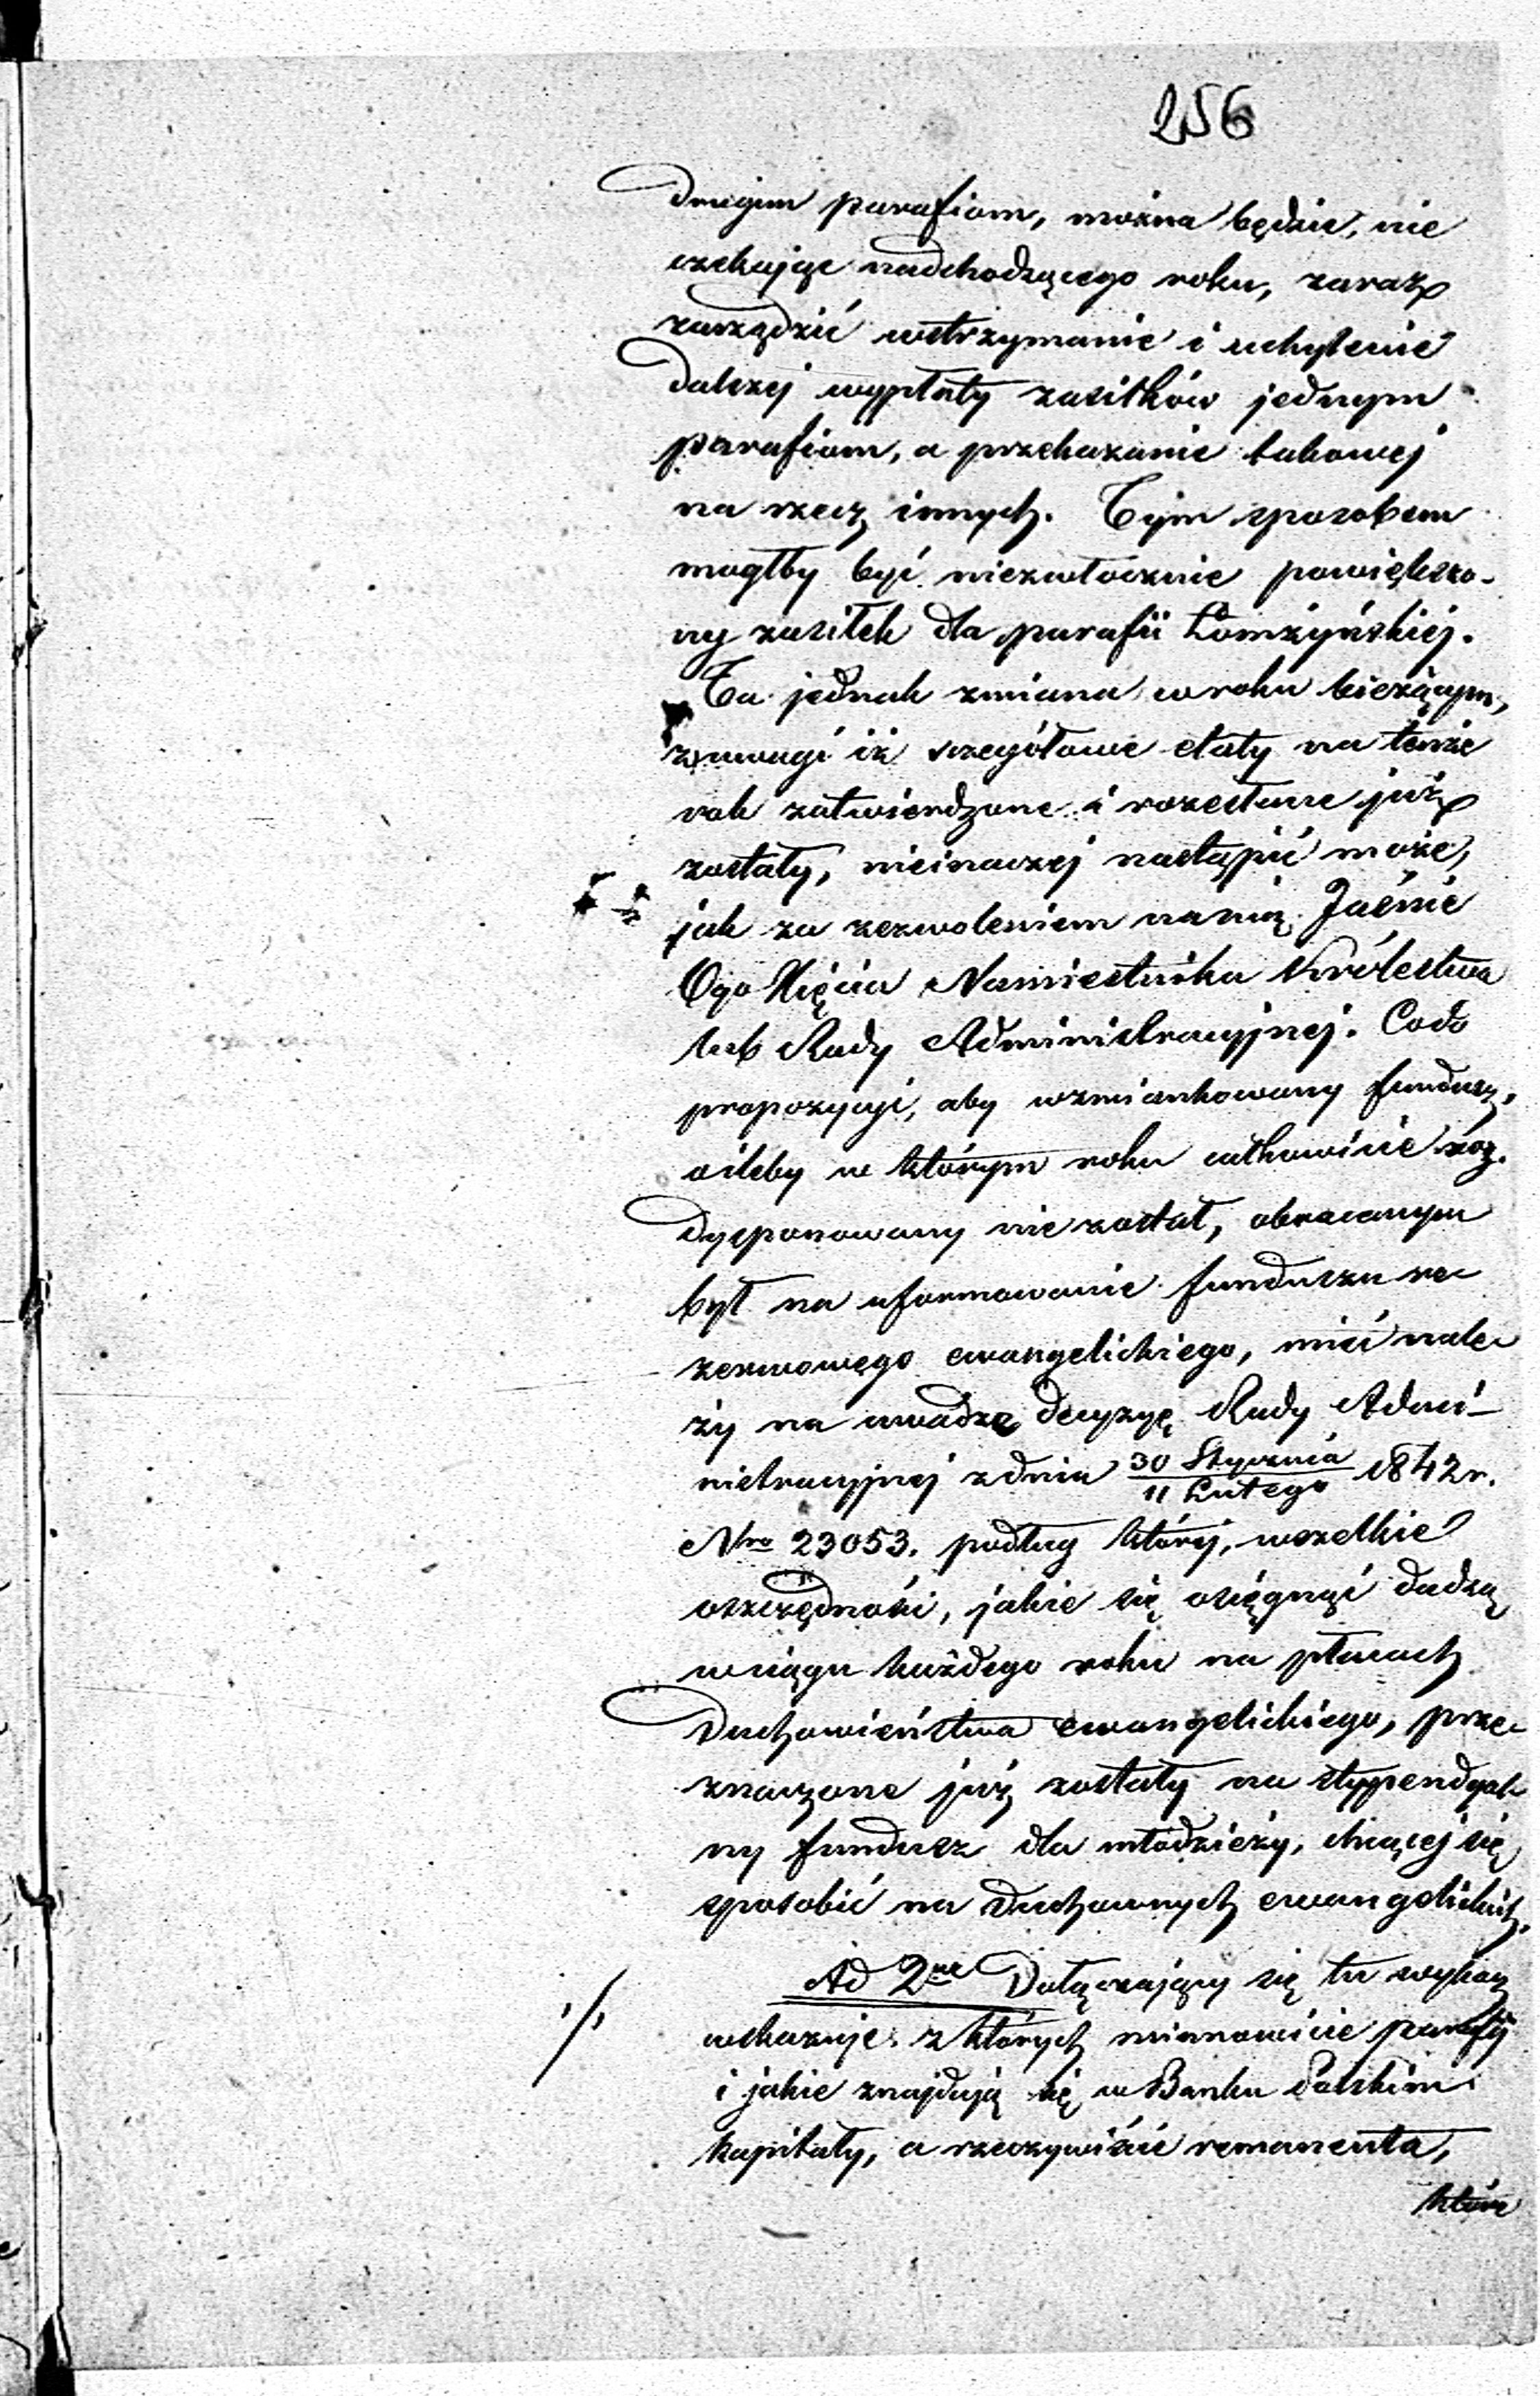 256
drugim parafiom, można będzie, nie
czekając nadchodzącego roku, zaraz
zarządzić wstrzymanie i uchylenie
dalszej wypłaty zasiłków jednym
parafiom, a przekazanie takowej
na rzecz innych. Tym sposobem
mógłby być niezwłocznie powiększo-
ny zasiłek dla parafii Łomżyńskiej.
Ta jednak zmiana w roku bieżącym,
z uwagi iż szczegółowe etaty na tenże
rok zatwierdzone i rozesłane już
zostały, nieinaczej nastąpić może,
jak za zezwoleniem na nią Jaśnie
Ogo Xięcia Namiestnika Królestwa
lub Rady Administracyjnej. Co do
propozycyi, aby wzmiankowany fundusz,
oileby w którym roku całkowicie roz-
dysponowany nie został, obracanym
był na uformowanie funduszu re-
zerwowego ewangelickiego, mieć nale-
ży na uwadze decyzyę Rady Admi-
nistracyjnej z dnia 30 Stycznia / 11 Lutego 1842 r.
Nro 23053. podług której, wszelkie
oszczędności, jakie się osięgnąć dadzą
w ciągu każdego roku na płacach
Duchowieństwa ewangelickiego, prze-
znaczone już zostały na stypendyal-
ny fundusz dla młodzieży, chcącej się
sposobić na Duchownych ewangelickich.
Ad 2ne Dołączający się tu wykaz
wskazuje z których mianowicie parafij
i jakie znajdują się w Banku Polskim
kapitały, a rzeczywiście remanenta,
które